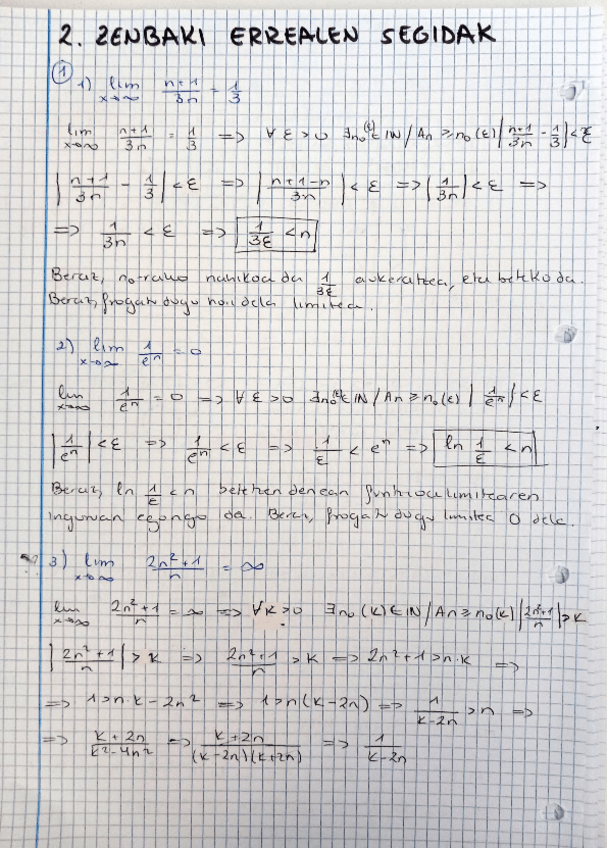 2. ZENBAKI ERREALEN SEGIDAK
① 1) lim x→∞ n+1/3n = 1/3
lim x→∞ n+1/3n = 1/3 => ∀ε>0 ∃n₀(ε)∈ℕ / ∀n ≥ n₀(ε) |n+1/3n - 1/3| < ε
|n+1/3n - 1/3| < ε => |n+1-n/3n| < ε => |1/3n| < ε =>
=> 1/3n < ε => 1/3ε < n
Beraz, n₀-rako nahikoa da 1/3ε aukeratzea, eta beteko da.
Beraz, frogatu dugu hori dela limitea.
2) lim x→∞ 1/eⁿ = 0
lim x→∞ 1/eⁿ = 0 => ∀ε>0 ∃n₀(ε)∈ℕ / ∀n ≥ n₀(ε) |1/eⁿ| < ε
|1/eⁿ| < ε => 1/eⁿ < ε => 1/ε < eⁿ => ln 1/ε < n
Beraz, ln 1/ε < n betetzen denean funtzioa limitearen
inguruan egongo da. Beraz, frogatu dugu limitea 0 dela.
3) lim x→∞ 2n²+1/n = ∞
lim x→∞ 2n²+1/n = ∞ => ∀k>0 ∃n₀(k)∈ℕ / ∀n ≥ n₀(k) |2n²+1/n| > k
|2n²+1/n| > k => 2n²+1/n > k => 2n²+1 > n·k =>
=> 1 > n·k - 2n² => 1 > n(k-2n) => 1/k-2n > n =>
=> k+2n/k²-4n² => k+2n/(k-2n)(k+2n) => 1/k-2n